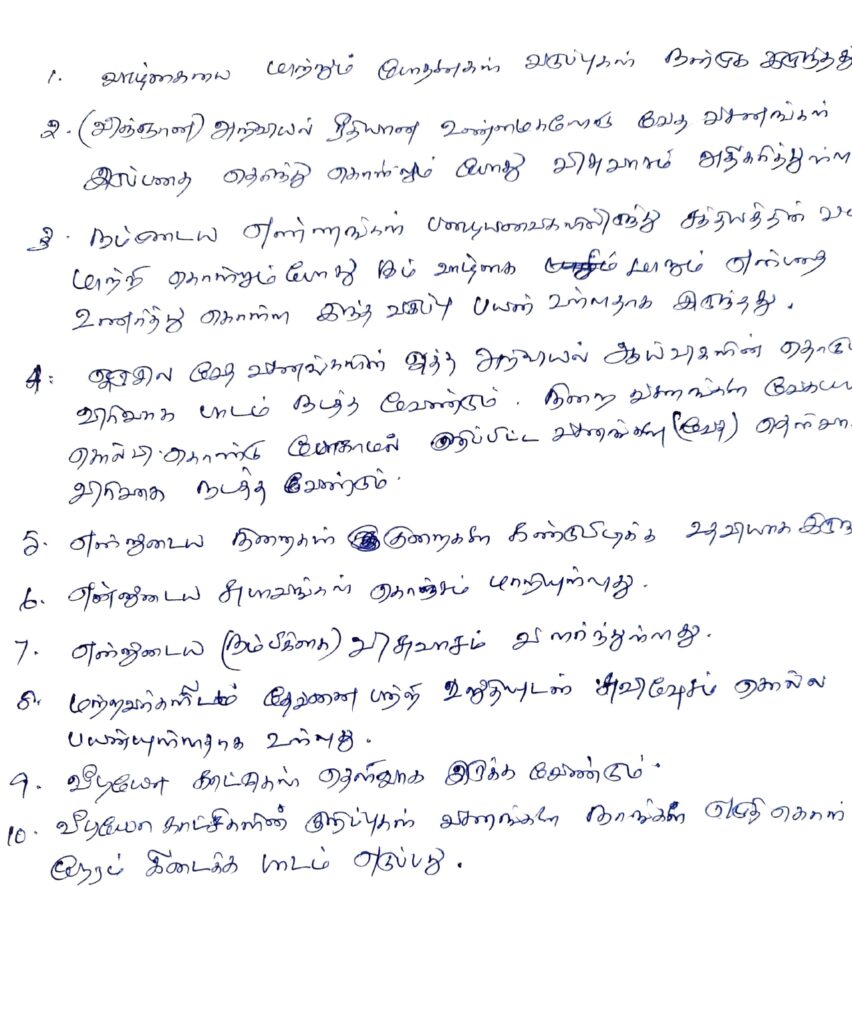 1. வாழ்கையை மாற்றும் போதனைகள் வகுப்புகள் நன்றாக இருந்தத
2. (விஞ்ஞான) அறிவியல் ரீதியான உண்மைகளோடு வேத வசனங்கள்
இருப்பதை தெரிந்து கொள்ளும் போது விசுவாசம் அதிகரித்துள்ள
3. நம்முடைய எண்ணங்கள் பழையவைகளிலிருந்து சத்தியத்தின்
மாற்றி கொள்ளும் போது நம் வாழ்கை மாறும் என்பதை
உணர்ந்து கொள்ள இந்த வகுப்பு பயன் உள்ளதாக இருந்தது.
4. ஒருசில வேத வசனங்களின் அறிவியல் ஆய்வுகளின் தொடர்
விரிவாக பாடம் நடத்த வேண்டும். நிறை வசனங்களை வேகமா
சொல்லி கொண்டு போகாமல் குறிப்பிட்ட வசனங்களை (வேத) தெளிவா
விரிவாக நடத்த வேண்டும்.
5. என்னுடைய நிறைகள் குறைகளை கண்டுபிடிக்க உதவியாக இருந
6. என்னுடைய சுபாவங்கள் கொஞ்சம் மாறியுள்ளது.
7. என்னுடைய (நம்பிக்கை) விசுவாசம் வளர்ந்துள்ளது.
8. மற்றவர்களிடம் தேவனை பற்றி உறுதியுடன் சுவிஷேசம் சொல்ல
பயனுள்ளதாக உள்ளது.
9. வீடியோ காட்சிகள் தெளிவாக இருக்க வேண்டும்.
10. வீடியோ காட்சிகளின் குறிப்புகள் வசனங்களை நாங்கள் எழுதி கொள்
நேரம் கிடைக்க பாடம் எடுப்பது.